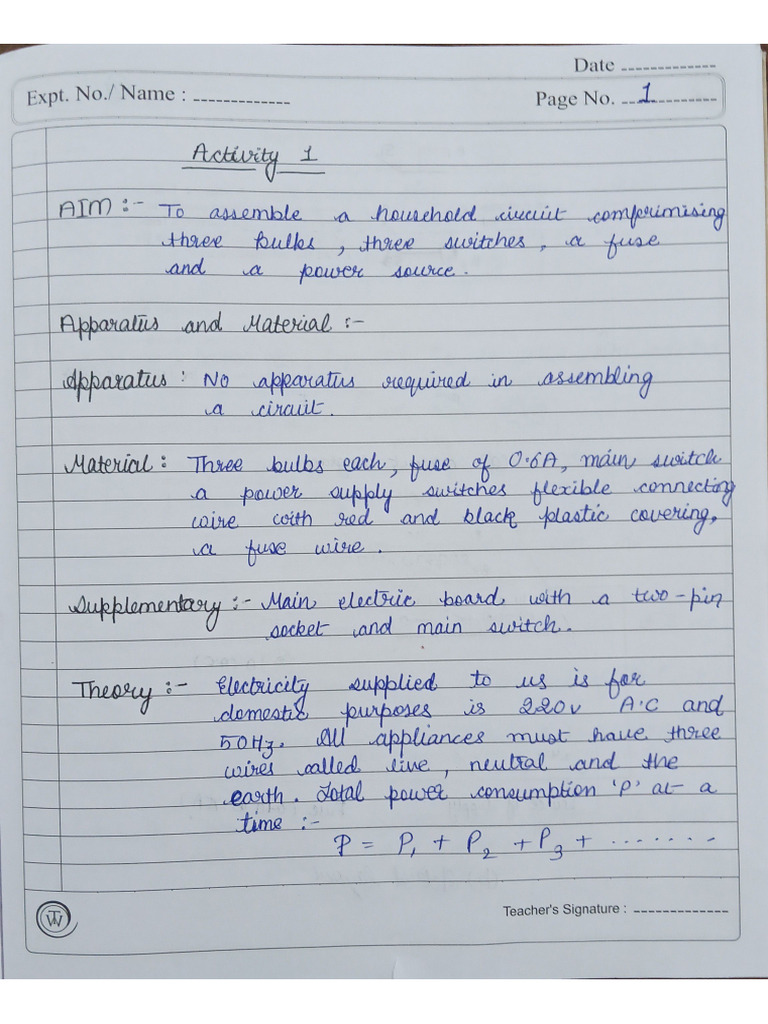 Date -------------
Expt. No./ Name : -------------
Page No. 1
Activity 1
AIM :- To assemble a household circuit comperimising
three bulbs, three switches, a fuse
and a power source.
Apparatus and Material :-
Apparatus : No apparatus required in assembling
a circuit.
Material : Three bulbs each, fuse of 0.6A, main switch
a power supply switches flexible connecting
wire with red and black plastic covering,
a fuse wire.
Supplementary :- Main electric board with a two-pin
socket and main switch.
Theory :- Electricity supplied to us is for
domestic purposes is 220v A.C and
50Hz. All appliances must have three
wires called live, neutral and the
earth. Total power consumption 'P' at a
time :-
P = P1 + P2 + P3 + .......
Teacher's Signature : -------------